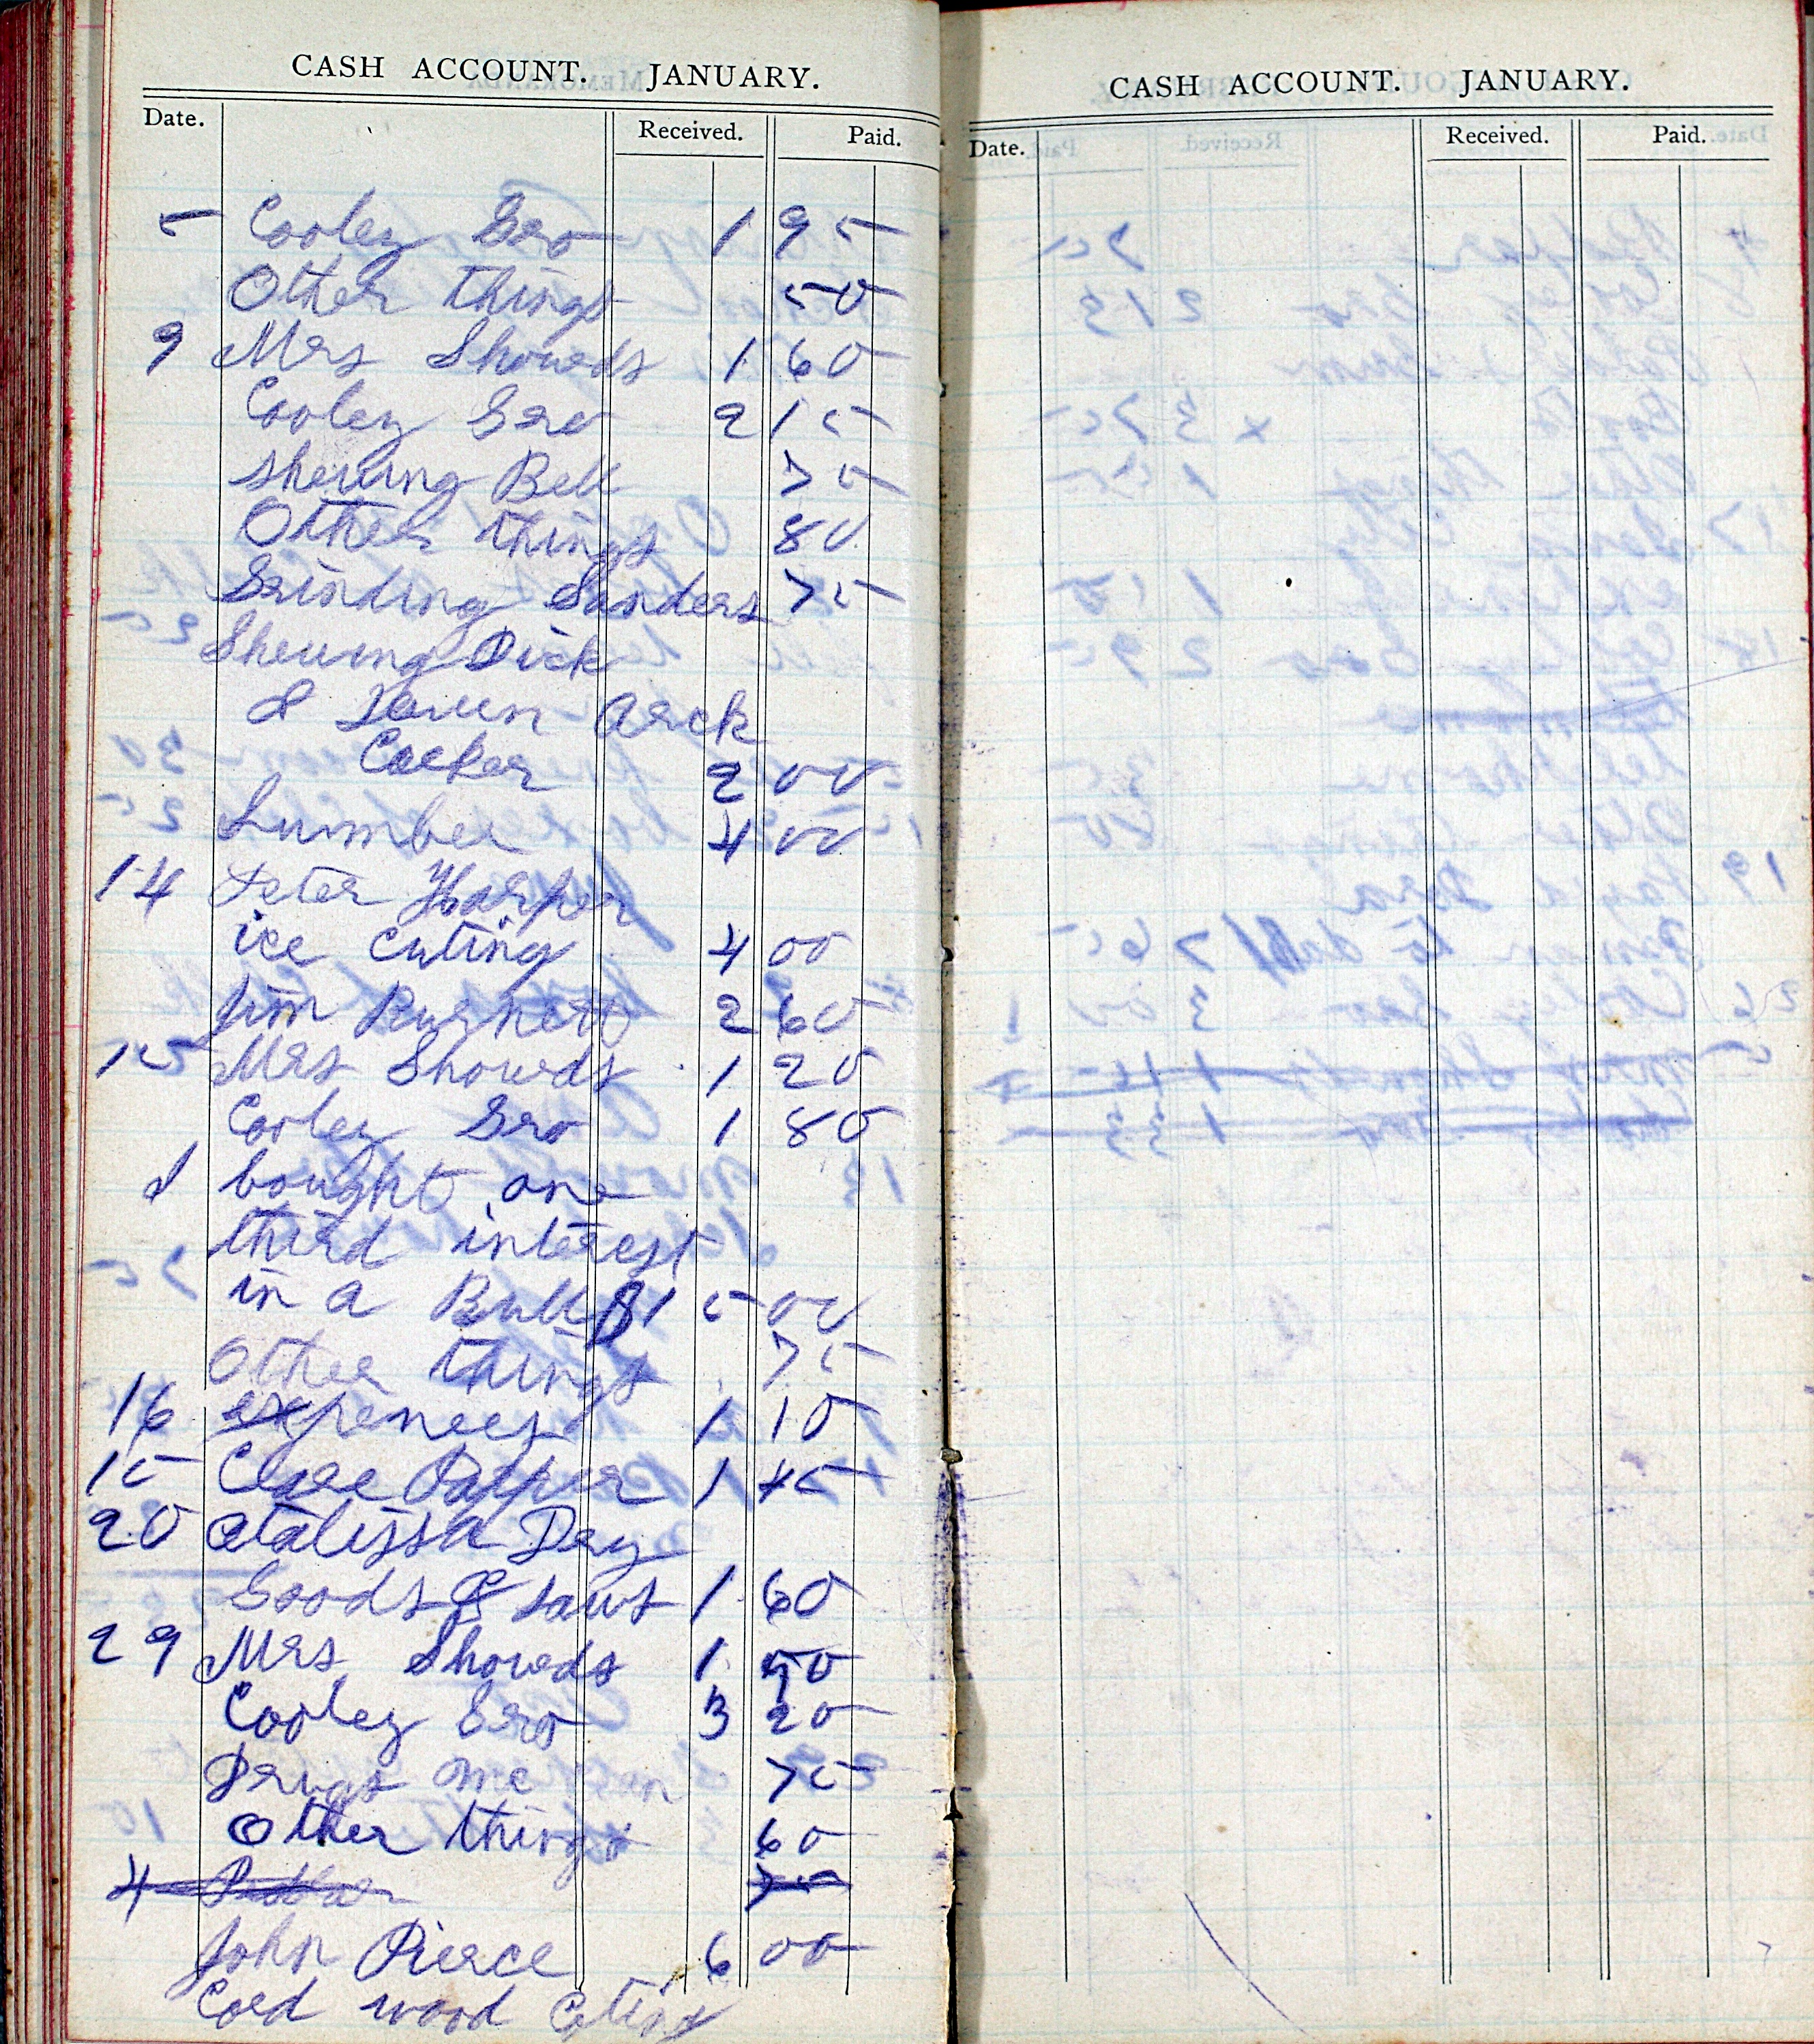 CASH ACCOUNT. JANUARY.
Date. Received. Paid.
5 Cooley Gro 1 95
Other things 50
9 Mrs Showeds 1 60
Cooley Gro 2 15
sheuing Bell 75
Other things 80
Grinding Sanders 75
Sheuing Dick
& Arck
2 00
Lumber 4 00
14 Peter Harper
ice cuting 4 00
Jim Burnett 2 60
15 Mrs Showeds 1 20
Cooley Gro 1 80
I bought one
third interest
in a Bull $1 5 00
Other things 75
16 expences 1 10
15 Clare Papper 1 45
20 Atalissa Day
Goods & saws 1 60
29 Mrs Showeds 1 50
Cooley Gro 3 20
Drugs me 75
Other things 60
4 75
John Pierce 6 00
Cord wood Coting
CASH ACCOUNT. JANUARY.
Date. Received. Paid.